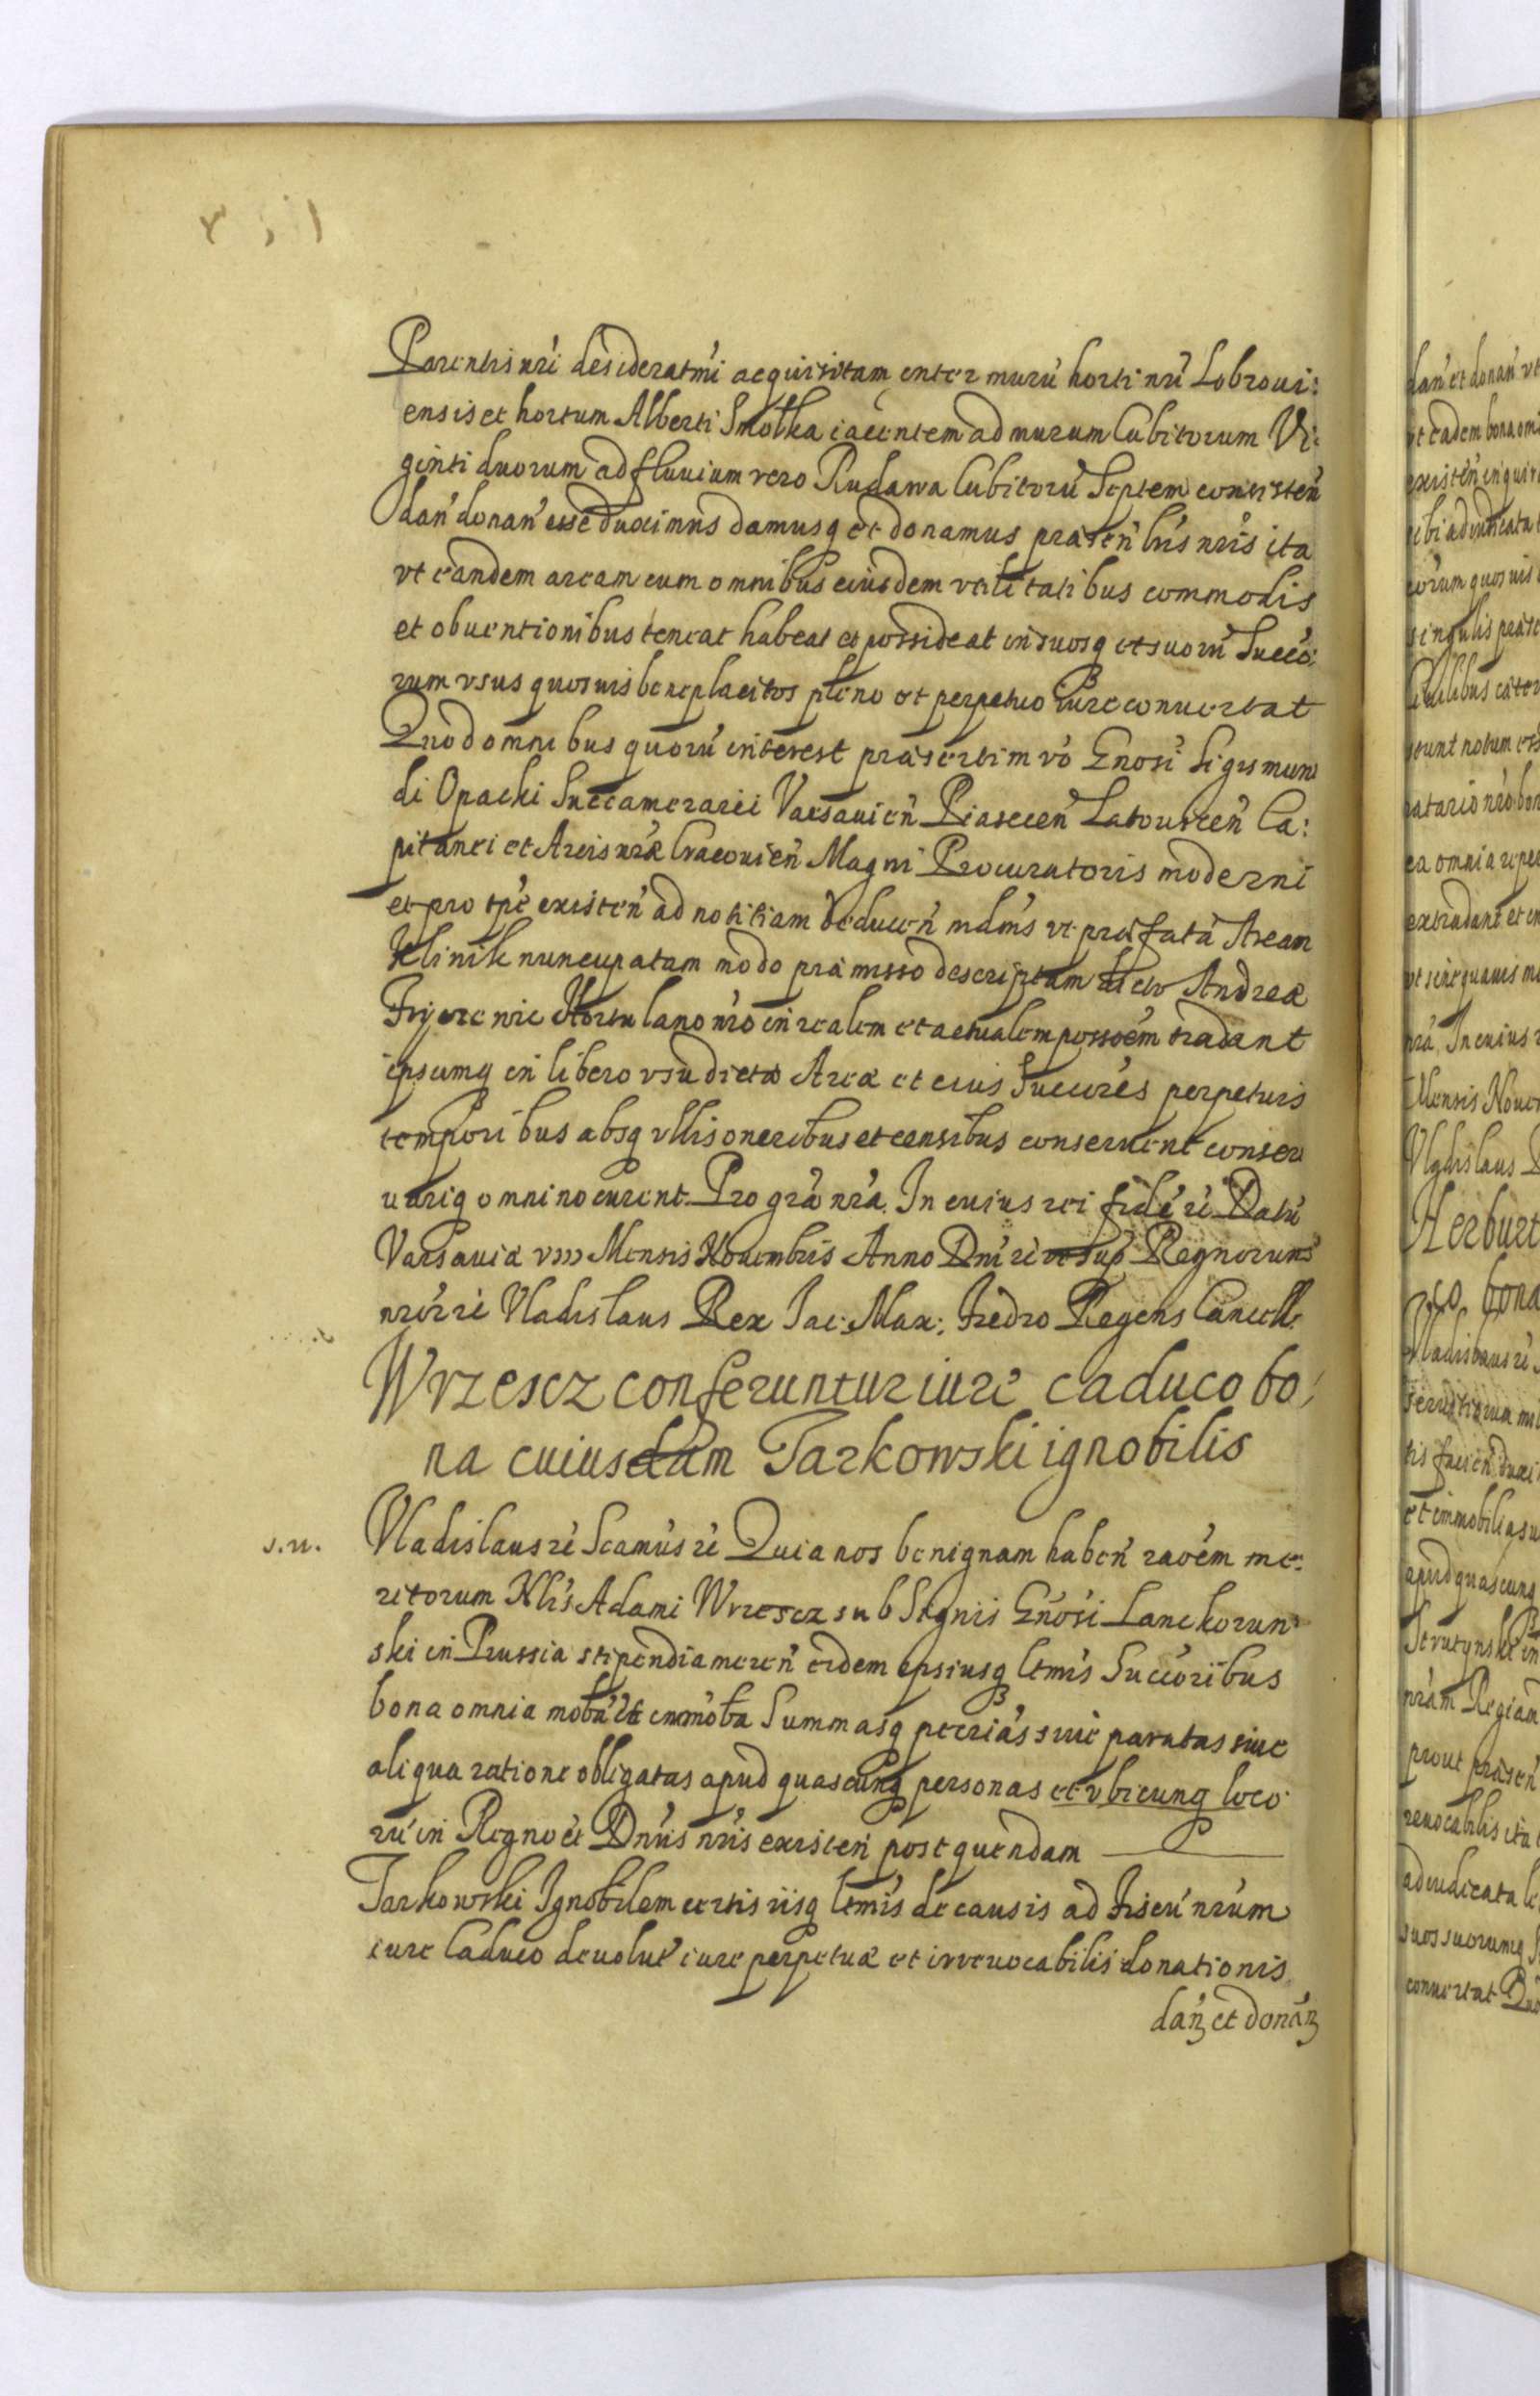 Parentis nr̃i desideratm̃i acquisitam inter murũ horti nr̃i Lobzoui:
ensis et hortum Alberti Smolka iacentem ad murum Cubitorum Vi:
ginti duorum ad fluuium vero Rudawa Cubitorũ Septem consisteñ
dañ donañ esse duximus damusq et donamus præsen lr̃is nr̃is ita
vt eandem aream cum omnibus eiusdem vtilitatibus commodis
et obuentionibus teneat habeat et possideat in suosq et suorũ Succo:
rum vsus quosuis beneplacitos pleno et perpetuo iure conuertat
Quod omnibus quorũ interest præsertim vo Gnosi Sigismun
di Opacki Succamerarii Varsauieñ Piaseceñ Latouiceñ Ca:
pitanei et Arcis nr̃æ Cracouieñ Magni Procuratoris moderni
et pro tpe existeñ ad notitiam deduceñ mdms vt præfatã Aream
Klinik nuncupatam modo præmisso descriptam dicto Andreæ
Hortulano nr̃o in realem et actualem possoem tradant
ipsumq in libero vsu dictæ Areæ et eius Succores perpetuis
temporibus absq vllis oneribus et censibus conseruent conser
uariq omnino curent Pro grã nr̃a. In cuius rei fidẽ rẽ Datũ
Varsauiæ VIII Mensis Nouembris Anno Dni rẽ vt sup Regnorum
nror̃ rẽ Vladislaus Rex Jac: Max: Fredro Regens Cancell:
Wrzescz conferuntur iure caduco bo/
na cuiusdam Tarkowski ignobilis
s.n. Vladislaus rẽ Scamus rẽ Quia nos benignam habeñ raoem me:
ritorum Nlis Adami Wrzescz sub Signis Gnosi Lanckorun
ski in Prussia stipendia mereñ eidem ipsiusq ltmis Succoribus
bona omnia moba et immoba Summasq pecrias siue paratas siue
aliqua ratione obligatas apud quascunq personas et vbicunq loco
rũ in Regno et Dnys nr̃is existeñ post quendam
Tarkowski Ignobilem certis iisq ltmis de causis ad fiscũ nr̃um
iure Caduco deuolut iure perpetuæ et irreuocabilis donationis
dañ et donañ